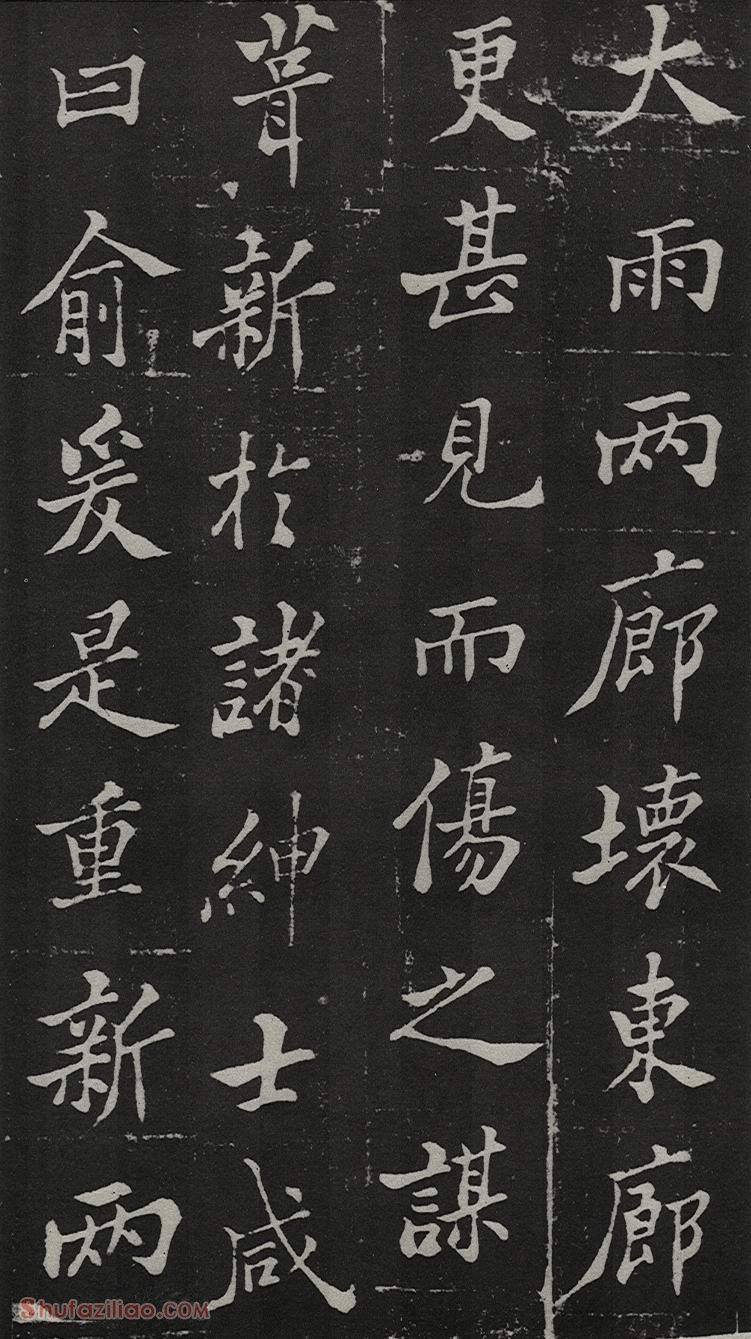 大雨两廊壞東廊
更甚見而傷之謀
葺新於諸紳士咸
曰俞爰是重新两
Shufaziliao.com